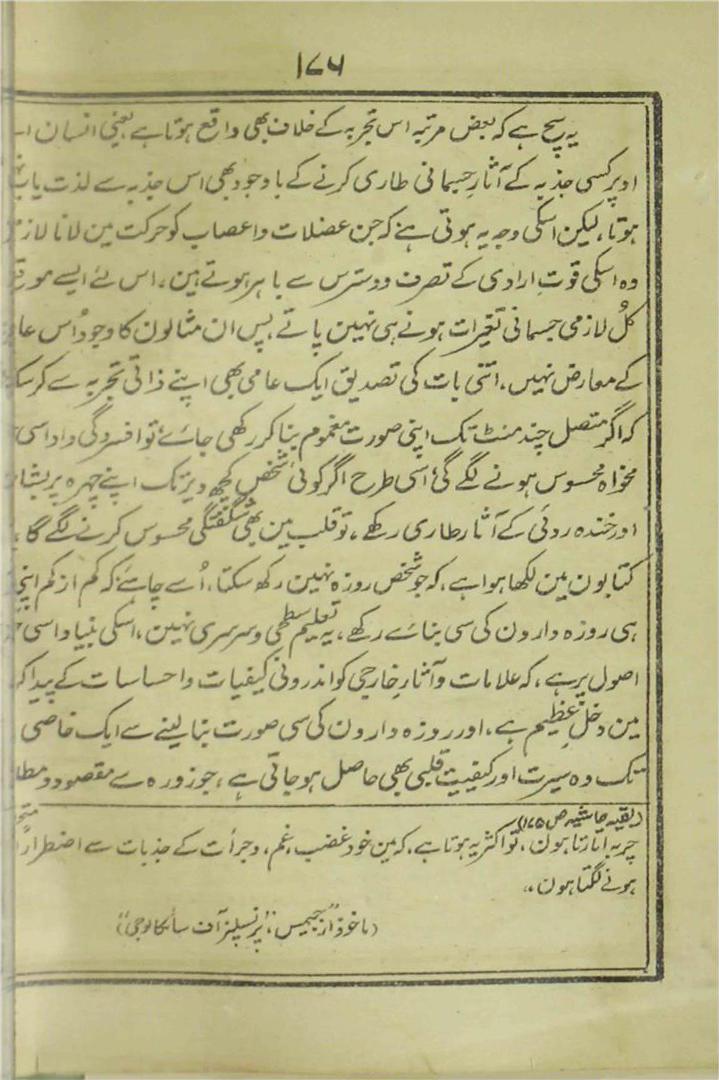 ۱۷۶
یہ سچ ہے کہ بعض مرتبہ اس تجربہ کے خلاف بھی واقع ہوتا ہے یعنی انسان
اوپر کسی جذبہ کے آثارِ جسمانی طاری کرنے کے باوجود بھی اس جذبہ سے لذت یاب
ہوتا، لیکن اسکی وجہ یہ ہوتی ہے کہ جن عضلات و اعصاب کو حرکت مین لانا لازم
وہ اسکی قوتِ ارادی کے تصرف و دسترس سے باہر ہوتے ہین، اس لئے ایسے موقع
کُل لازمی جسمانی تغیرات ہونے ہی نہین پاتے پس ان مثالون کا وجود اُس
کے معارض نہیں، اتنی بات کی تصدیق ایک عامی بھی اپنے ذاتی تجربہ سے کر
کہ اگر متصل چند منٹ تک اپنی صورت مغموم بنا کر رکھی جائے تو افسردگی و اداسی
مخواہ محسوس ہونے لگے گی اسی طرح اگر کوئی شخص کچھ دیر تک اپنے چہرہ پر
اور خندہ روئی کے آثار طاری رکھے، تو قلب مین بھی شگفتگی محسوس کرنے لگے گا،
کتابون مین لکھا ہوا ہے، کہ جو شخص روزہ نہین رکھ سکتا، اُسے چاہئے کہ کم از کم
ہی روزہ دارون کی سی بنائے رکھے، یہ تعلیم سطحی و سرسری نہین، اسکی بنیاد اسی
اصول پر ہے، کہ علامات و آثارِ خارجی کو اندرونی کیفیات و احساسات کے پیدا
مین دخلِ عظیم ہے، اور روزہ دارون کی سی صورت بنا لینے سے ایک خاص
تک وہ سیرت اور کیفیتِ قلبی بھی حاصل ہو جاتی ہے، جو روزہ سے مقصود و
(بقیہ حاشیہ ص ۱۷۵)
چربہ اتارتا ہون، تو اکثر یہ ہوتا ہے، کہ مین خود غضب، غم، و جرأت کے جذبات سے اضطراراً
ہونے لگتا ہون،،
(ماخوذ از جیمس، "پرنسپلز آف سائکالوجی")